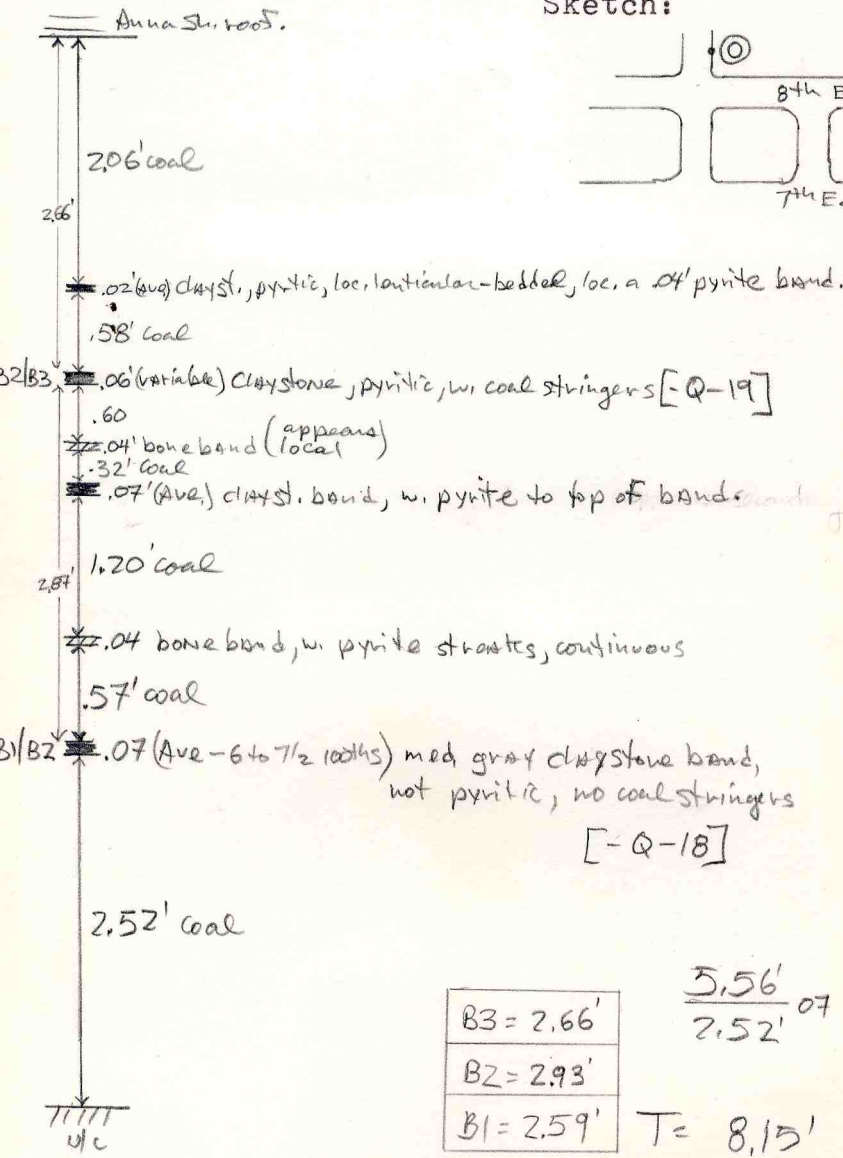 Sketch:
Anna Sh. roof.
8th E
7th E.
2.06' coal
2.66'
.02' (Ave) clayst., pyritic, loc. lenticular-bedded, loc. a .04' pyrite band.
.58' coal
B2/B3 .06' (variable) Claystone, pyritic, w. coal stringers [-Q-19]
.60
.04' bone band (appears local)
.32' coal
.07' (Ave.) clayst. band, w. pyrite to top of band.
1.20' coal
2.87'
.04 bone band, w. pyrite streaks, continuous
.57' coal
B1/B2 .07 (Ave - 6 to 7 1/2 100ths) med gray claystone band,
not pyritic, no coal stringers
[-Q-18]
2.52' coal
B3 = 2.66'
B2 = 2.93'
B1 = 2.59'
5.56'
07
2.52'
T = 8.15'
U/C